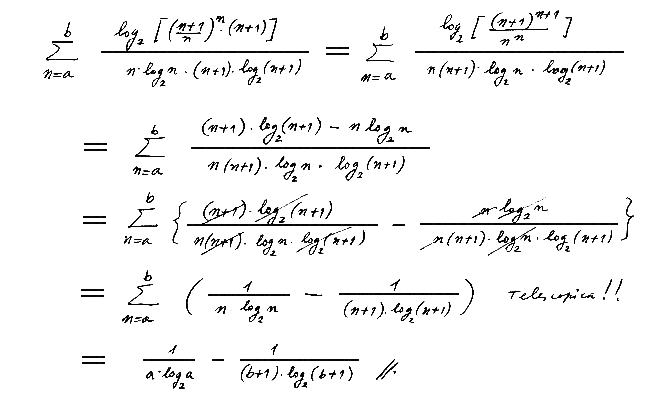 \sum_{n=a}^{b} \frac{\log_2 [(\frac{n+1}{n})^n \cdot (n+1)]}{n \cdot \log_2 n \cdot (n+1) \cdot \log_2 (n+1)} = \sum_{n=a}^{b} \frac{\log_2 [\frac{(n+1)^{n+1}}{n^n}]}{n(n+1) \cdot \log_2 n \cdot \log_2 (n+1)}
= \sum_{n=a}^{b} \frac{(n+1) \cdot \log_2 (n+1) - n \log_2 n}{n(n+1) \cdot \log_2 n \cdot \log_2 (n+1)}
= \sum_{n=a}^{b} \{ \frac{(n+1) \cdot \log_2 (n+1)}{n(n+1) \cdot \log_2 n \cdot \log_2 (n+1)} - \frac{n \log_2 n}{n(n+1) \cdot \log_2 n \cdot \log_2 (n+1)} \}
= \sum_{n=a}^{b} ( \frac{1}{n \cdot \log_2 n} - \frac{1}{(n+1) \cdot \log_2 (n+1)} ) Telescopica!!
= \frac{1}{a \cdot \log_2 a} - \frac{1}{(b+1) \cdot \log_2 (b+1)} //.